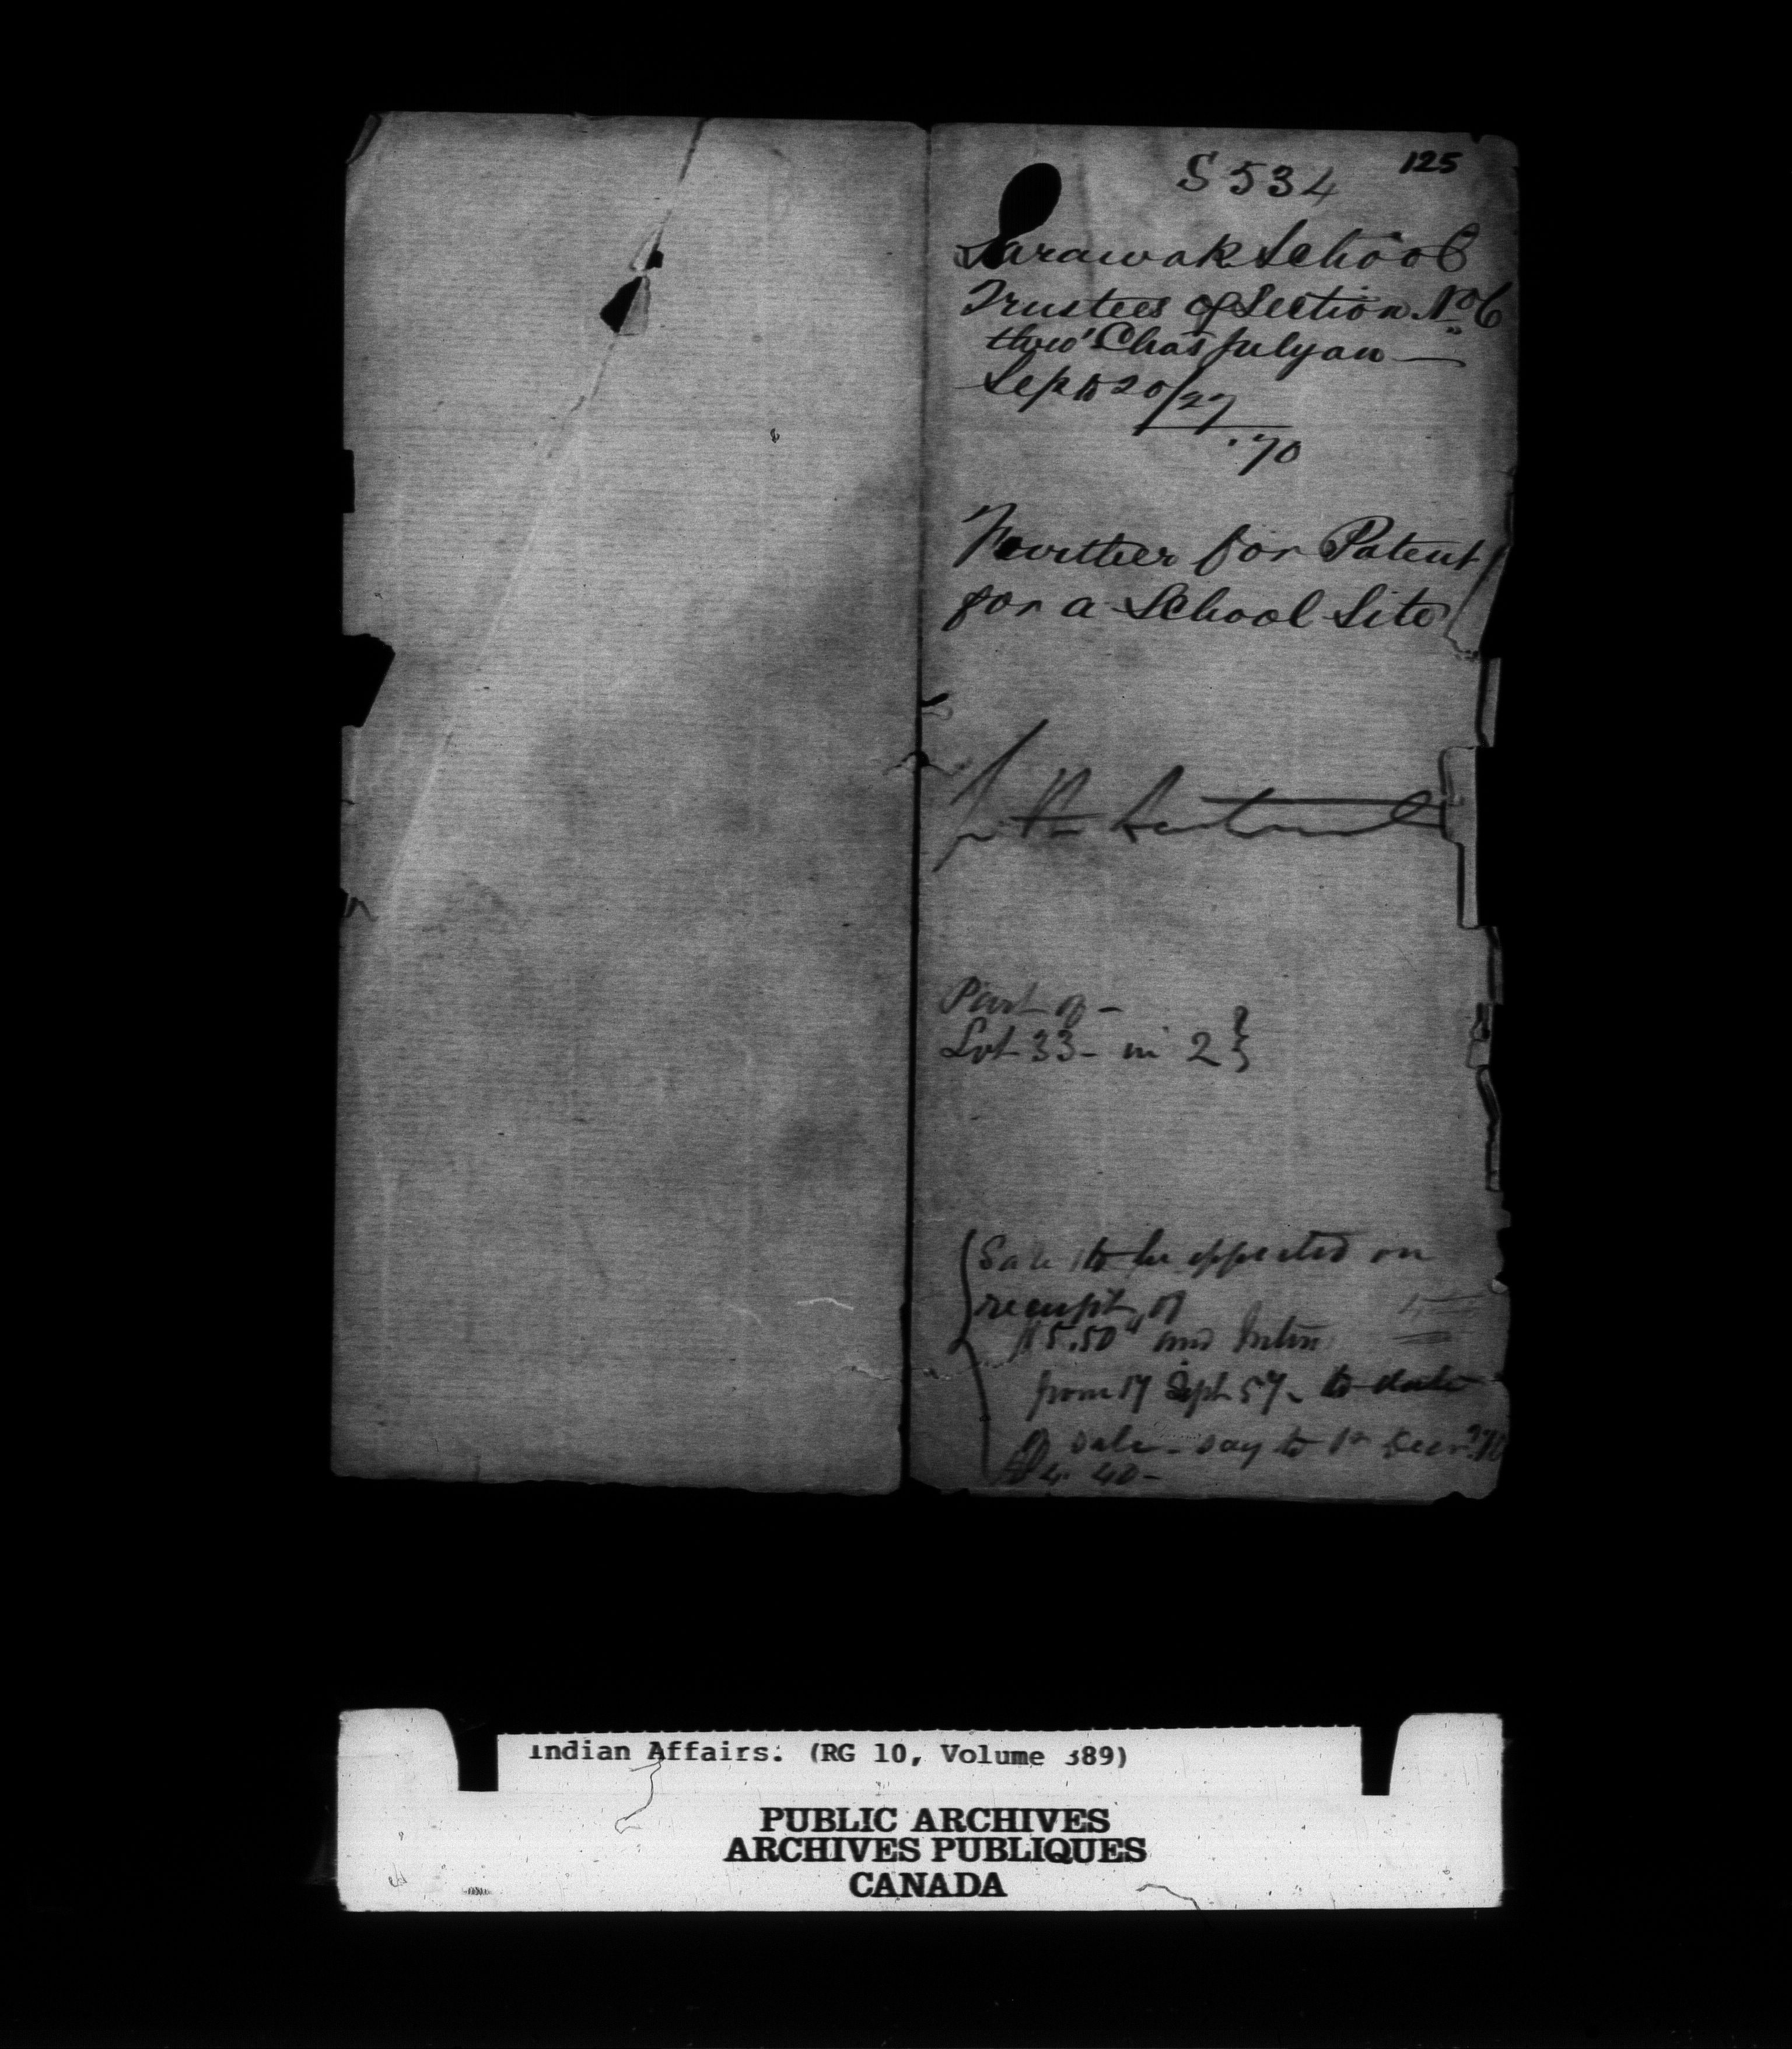 125
S 534
Sarawak School
Trustees of Section No 6
thro' Chas Julyan
Sept 20/27
.70
Further for Patent
for a School Site
Part of -
Lot 33 - in 2 }
Sale to be effected on
receipt of
$5.50 and Inter
from 17 Sept 57 - to date
of sale - say to 1st Decr 70
$4. 40 -
Indian Affairs. (RG 10, Volume 389)
PUBLIC ARCHIVES
ARCHIVES PUBLIQUES
CANADA